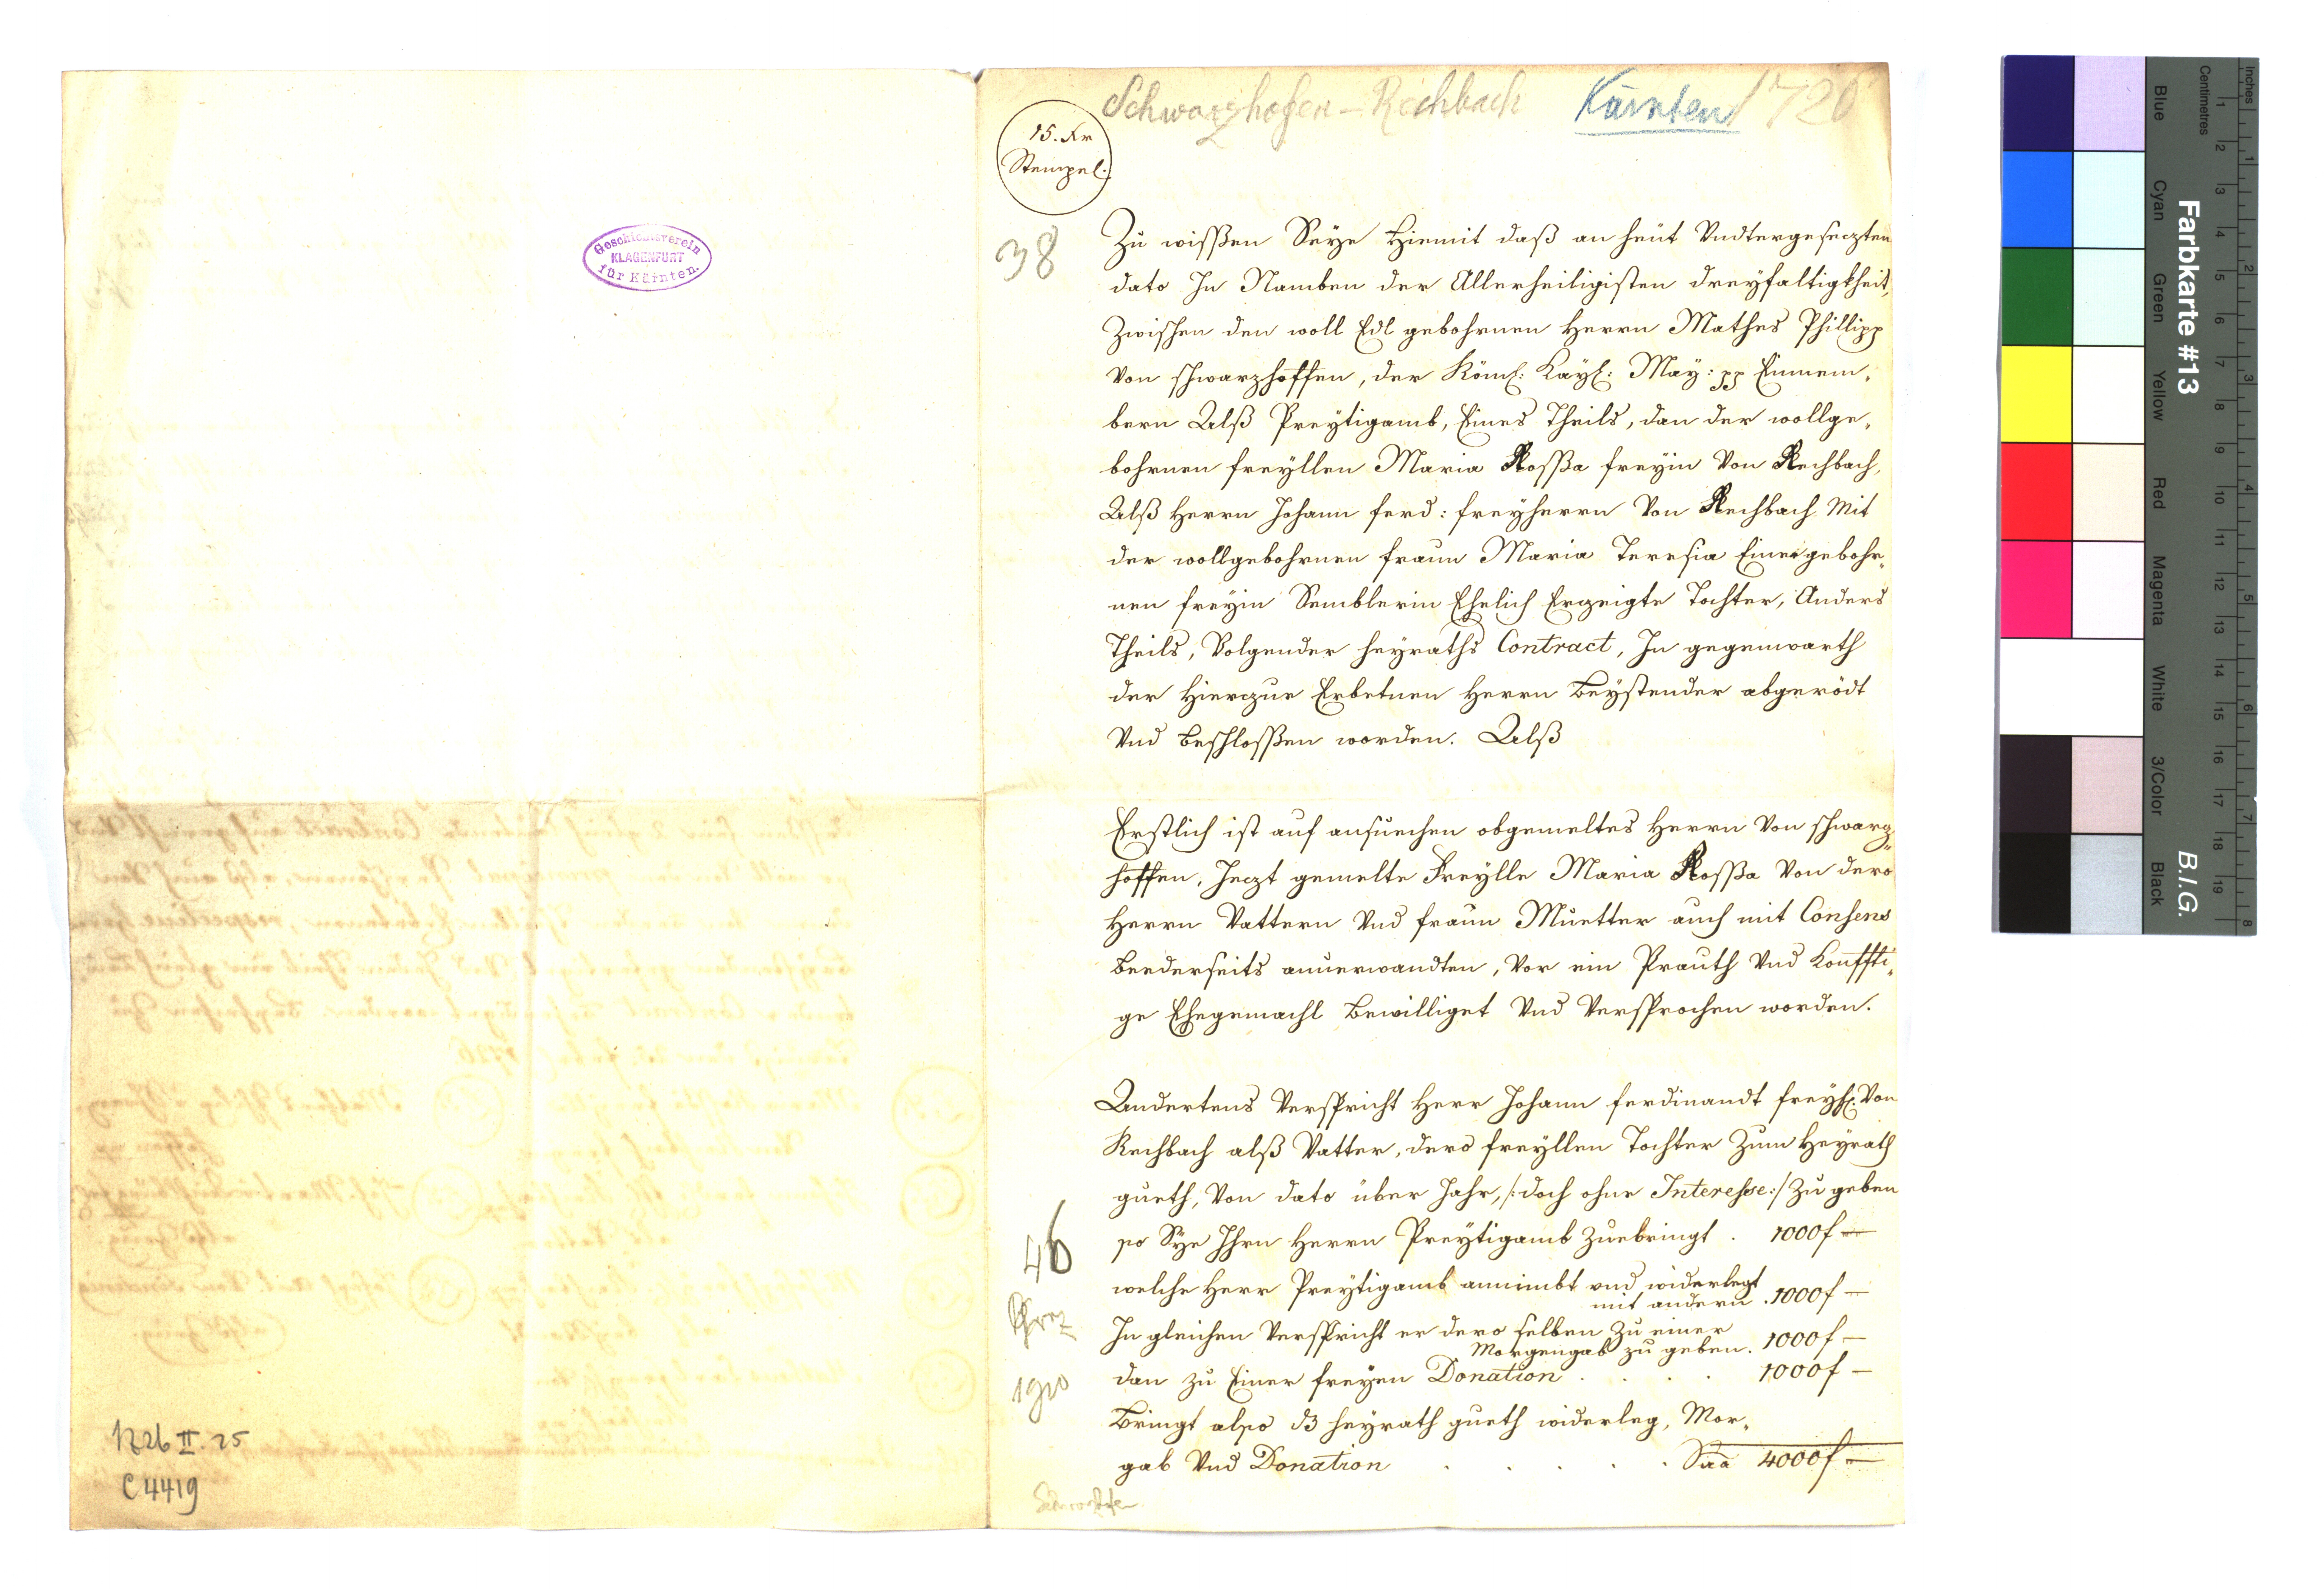 Geschichtsverein
KLAGENFURT
für Kärnten.
1726 II. 25
C 4419
Schwarzhofen – Rechbach Kärnten 1726
15. Kr
Stempel.
38
Zu wissen Seye Hiemit daß an heüt Vndtergesezten
dato In Namben der Allerheiligisten dreyfaltigkheit,
Zwischen den woll Edl gebohrnen Herrn Mathes Phillipp
Von schwarzhoffen, der Röml: Kayl: May: pp Einnem,
bern Alß Preytigamb, Eines Theils, dan der wollge,
bohrnen freyllen Maria Rossa freyin Von Rechbach,
Alß Herrn Johann ferd: freyherrn Von Rechbach Mit
der wollgebohrnen fraun Maria Teresia Einer gebohr,
nen freyin Semblerin Ehelich Erzeigte Tochter, Anders
Theils, Volgender heyraths Contract, In gegenwarth
der Hierzue Erbetnen Herrn Beystender abgerödt
Vnd Beschlossen worden. Alß
Erstlich ist auf ansuechen obgemeltes Herrn Von schwarz,,
hoffen, Jezt gemelte Freylle Maria Rossa Von dero
Herrn Vattern Vnd fraun Muetter auch mit Consens
Beederseits anuerwandten, Vor ein Prauth Vnd Konffti,
ge Ehegemachl Bewilliget Vnd Versprochen worden.
Andertens Verspricht Herr Johann ferdinandt freyh: Von
Rechbach alß Vatter, dero freyllen Tochter Zum Heyrath
gueth, Von dato über Jahr, /: doch ohne Interesse :/ Zu geben
46
so Sye Ihrn Herrn Preytigamb Zuebringt . 1000 f —
welche Herr Preytigamb annimbt vnd widerlegt
mit andern . 1000 f —
In gleichen Verspricht er dero selben Zu einer
Morgengab zu geben . 1000 f —
dan zu Einer freyen Donation . . . . 1000 f —
Bringt also dz heyrath gueth widerleg, Mor,
gab Vnd Donation . . . . . Sua 4000 f —
Farbkarte #13
B.I.G.
Inches
Centimetres
1 2 3 4 5 6 7 8 9 10 11 12 13 14 15 16 17 18 19
1 2 3 4 5 6 7 8
Blue
Cyan
Green
Yellow
Red
Magenta
White
3/Color
Black